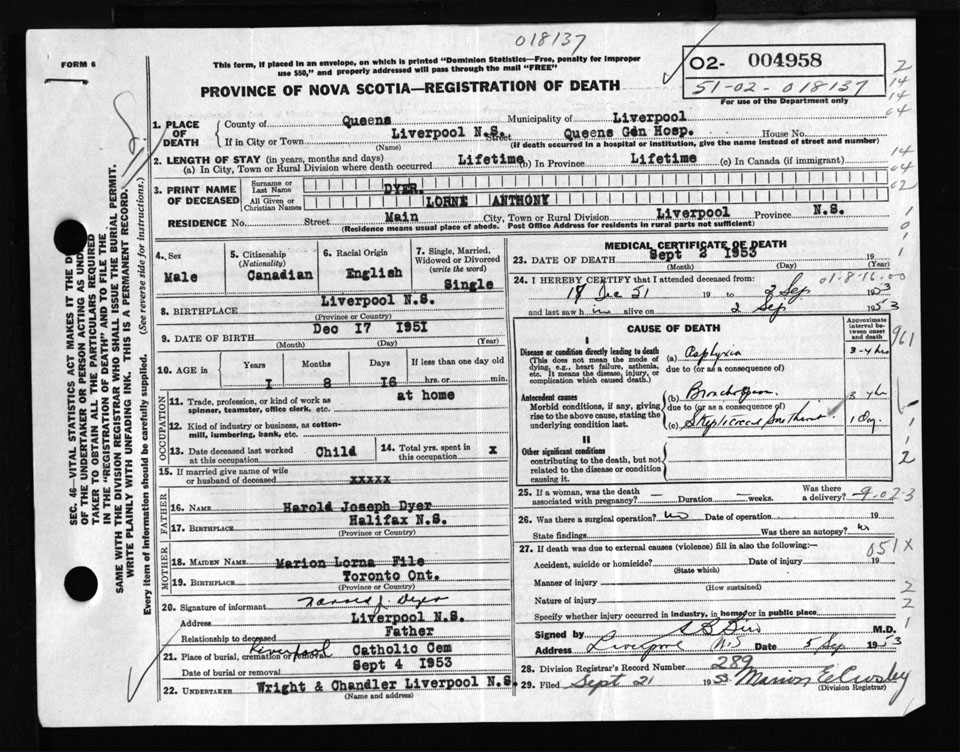 018137
FORM 6
This form, if placed in an envelope, on which is printed "Dominion Statistics—Free, penalty for improper
use $50," and properly addressed will pass through the mail "FREE"
O2- 004958
51-02-018137
For use of the Department only
PROVINCE OF NOVA SCOTIA—REGISTRATION OF DEATH
2
14
14
04
14
04
02
SEC. 46—VITAL STATISTICS ACT MAKES IT THE DU
OF THE UNDERTAKER OR PERSON ACTING AS UNDER
TAKER TO OBTAIN ALL THE PARTICULARS REQUIRED
IN THE "REGISTRATION OF DEATH" AND TO FILE THE
SAME WITH THE DIVISION REGISTRAR WHO SHALL ISSUE THE BURIAL PERMIT.
WRITE PLAINLY WITH UNFADING INK. THIS IS A PERMANENT RECORD.
Every item of information should be carefully supplied. (See reverse side for instructions.)
1. PLACE OF DEATH
County of Queens Municipality of Liverpool
If in City or Town Liverpool N.S. Street Queens Gen Hosp. House No.
(Name) (If death occurred in a hospital or institution, give the name instead of street and number)
2. LENGTH OF STAY (in years, months and days)
(a) In City, Town or Rural Division where death occurred Lifetime (b) In Province Lifetime (c) In Canada (if immigrant)
3. PRINT NAME OF DECEASED
Surname or Last Name DYER.
All Given or Christian Names LORNE ANTHONY
RESIDENCE No. Street Main City, Town or Rural Division Liverpool Province N.S.
(Residence means usual place of abode. Post Office Address for residents in rural parts not sufficient)
4. Sex Male
5. Citizenship (Nationality) Canadian
6. Racial Origin English
7. Single, Married, Widowed or Divorced (write the word) Single
8. BIRTHPLACE Liverpool N.S.
(Province or Country)
9. DATE OF BIRTH Dec 17 1951
(Month) (Day) (Year)
10. AGE in Years Months Days If less than one day old
1 8 16 hrs. or min.
OCCUPATION
11. Trade, profession, or kind of work as spinner, teamster, office clerk, etc. at home
12. Kind of industry or business, as cotton-mill, lumbering, bank, etc.
13. Date deceased last worked at this occupation Child
14. Total yrs. spent in this occupation X
15. If married give name of wife or husband of deceased xxxxx
FATHER
16. NAME Harold Joseph Dyer
17. BIRTHPLACE Halifax N.S.
(Province or Country)
MOTHER
18. MAIDEN NAME Marion Lorna File
19. BIRTHPLACE Toronto Ont.
(Province or Country)
20. Signature of informant J. Dyer
Address Liverpool N.S.
Relationship to deceased Father
21. Place of burial, cremation or removal Liverpool Catholic Cem
Date of burial or removal Sept 4 1953
22. UNDERTAKER Wright & Chandler Liverpool N.S.
(Name and address)
MEDICAL CERTIFICATE OF DEATH
23. DATE OF DEATH Sept 2 1953 19
(Month) (Day)
24. I HEREBY CERTIFY that I attended deceased from: 01-8-16-00
17 Dec 51 19 to 2 Sep 1953
and last saw h m alive on 2 Sep 1953
CAUSE OF DEATH
Approximate interval between onset and death
961
I
Disease or condition directly leading to death
(This does not mean the mode of dying, e.g., heart failure, asthenia, etc. It means the disease, injury, or complication which caused death.)
(a) Asphyxia 3-4 hrs
due to (or as a consequence of)
Antecedent causes
Morbid conditions, if any, giving rise to the above cause, stating the underlying condition last.
(b)
due to (or as a consequence of)
(c) 1 Day.
II
Other significant conditions
contributing to the death, but not related to the disease or condition causing it.
25. If a woman, was the death associated with pregnancy? — Duration — weeks. Was there a delivery? 9-02-3
26. Was there a surgical operation? no Date of operation 19
State findings Was there an autopsy? no
27. If death was due to external causes (violence) fill in also the following:— 051X
Accident, suicide or homicide? Date of injury 19
(State which)
Manner of injury
(How sustained)
Nature of injury
Specify whether injury occurred in industry, in home, or in public place
Signed by M.D.
Address Liverpool NS 5 Sep 1953
28. Division Registrar's Record Number 289
29. Filed Sept 21 1953 Marion E
(Division Registrar)